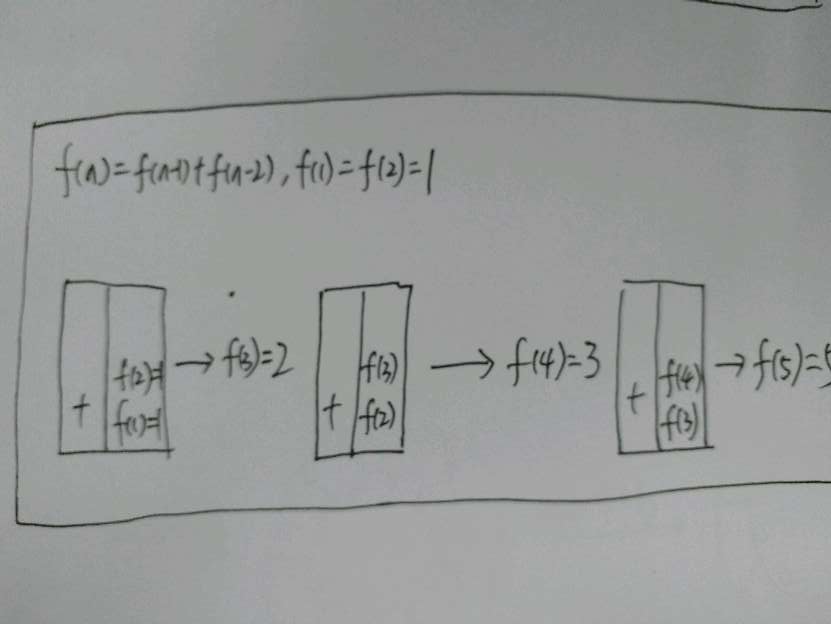 f(n)=f(n-1)+f(n-2), f(1)=f(2)=1
+ f(2)=1 f(1)=1 → f(3)=2
+ f(3) f(2) → f(4)=3
+ f(4) f(3) → f(5)=5